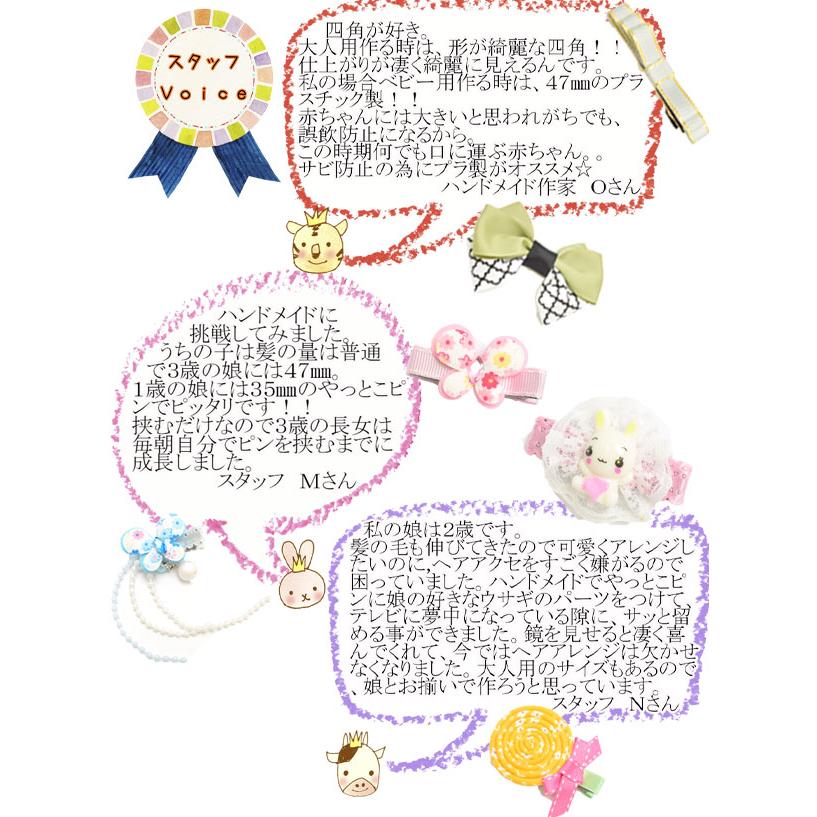 スタッフ
Voice
四角が好き。
大人用作る時は、形が綺麗な四角！！
仕上がりが凄く綺麗に見えるんです。
私の場合ベビー用作る時は、47㎜のプラ
スチック製！！
赤ちゃんには大きいと思われがちでも、
誤飲防止になるから。
この時期何でも口に運ぶ赤ちゃん。。
サビ防止の為にプラ製がオススメ☆
ハンドメイド作家　Oさん
ハンドメイドに
挑戦してみました。
うちの子は髪の量は普通
で3歳の娘には47㎜。
1歳の娘には35㎜のやっとこピ
ンでピッタリです！！
挟むだけなので3歳の長女は
毎朝自分でピンを挟むまでに
成長しました。
スタッフ　Mさん
私の娘は2歳です。
髪の毛も伸びてきたので可愛くアレンジし
たいのに,ヘアアクセをすごく嫌がるので
困っていました。ハンドメイドでやっとこピ
ンに娘の好きなウサギのパーツをつけて、
テレビに夢中になっている隙に、サッと留
める事ができました。鏡を見せると凄く喜
んでくれて、今ではヘアアレンジは欠かせ
なくなりました。大人用のサイズもあるので
、娘とお揃いで作ろうと思っています。
スタッフ　Nさん